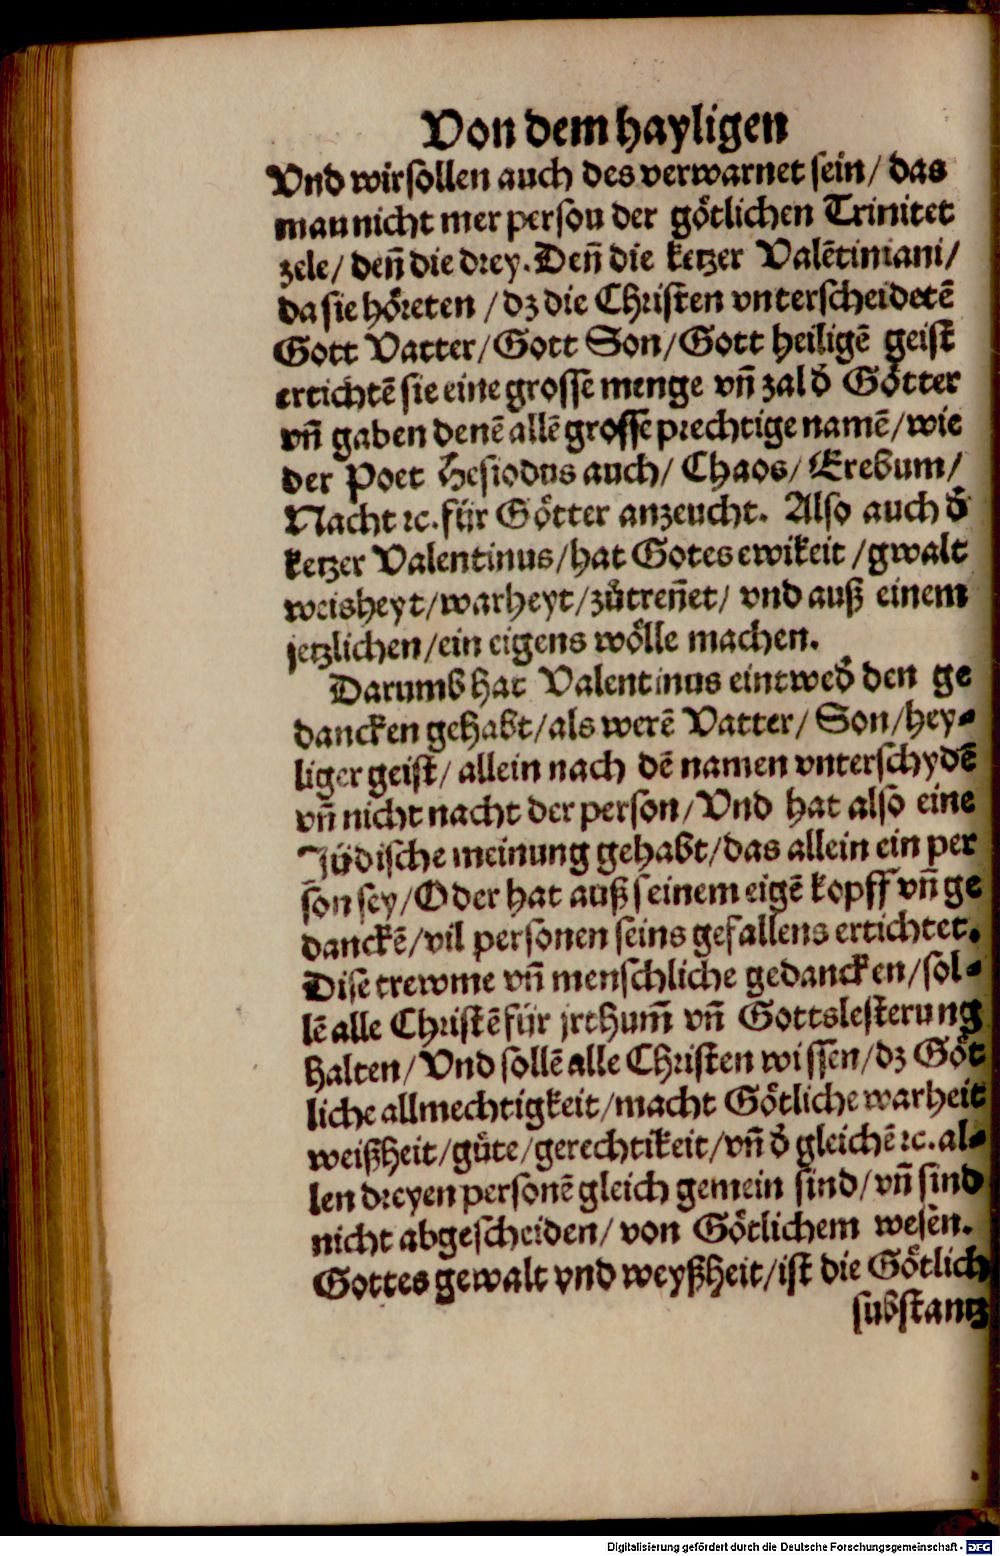 Von dem hayligen
Vnd wir sollen auch des verwarnet sein/ das
man nicht mer person der götlichen Trinitet
zele/ deñ die drey. Deñ die ketzer Valẽtiniani/
da sie höreten /dz die Christen vnterscheidetẽ
Gott Vatter/Gott Son/Gott heiligẽ geist
ertichtẽ sie eine grossẽ menge vñ zal d̕ Götter
vñ gaben denẽ allẽ grosse prechtige namẽ/wie
der Poet Hesiodus auch/ Chaos/ Erebum/
Nacht ꝛc. für Götter anzeucht. Also auch d̕
ketzer Valentinus/hat Gotes ewikeit /gwalt
weisheyt/warheyt/zůtreñet/ vnd auß einem
jetzlichen/ein eigens wölle machen.
Darumb hat Valentinus eintwed̕ den ge
dancken gehabt/als werẽ Vatter/ Son/hey-
liger geist/ allein nach dẽ namen vnterschydẽ
vñ nicht nacht der person/Vnd hat also eine
Jüdische meinung gehabt/das allein ein per
son sey/Oder hat auß seinem eigẽ kopff vñ ge
danckẽ/vil personen seins gefallens ertichtet.
Dise trewme vñ menschliche gedancken/sol-
lẽ alle Christẽ für jrthum̃ vñ Gottslesterung
halten/Vnd sollẽ alle Christen wissen/dz Göt
liche allmechtigkeit/macht Götliche warheit
weißheit/güte/gerechtikeit/vñ d̕ gleichẽ ꝛc. al-
len dreyen personẽ gleich gemein sind/vñ sind
nicht abgescheiden/ von Götlichem wesen.
Gottes gewalt vnd weyßheit/ist die Götlich
substantz
Digitalisierung gefördert durch die Deutsche Forschungsgemeinschaft - DFG